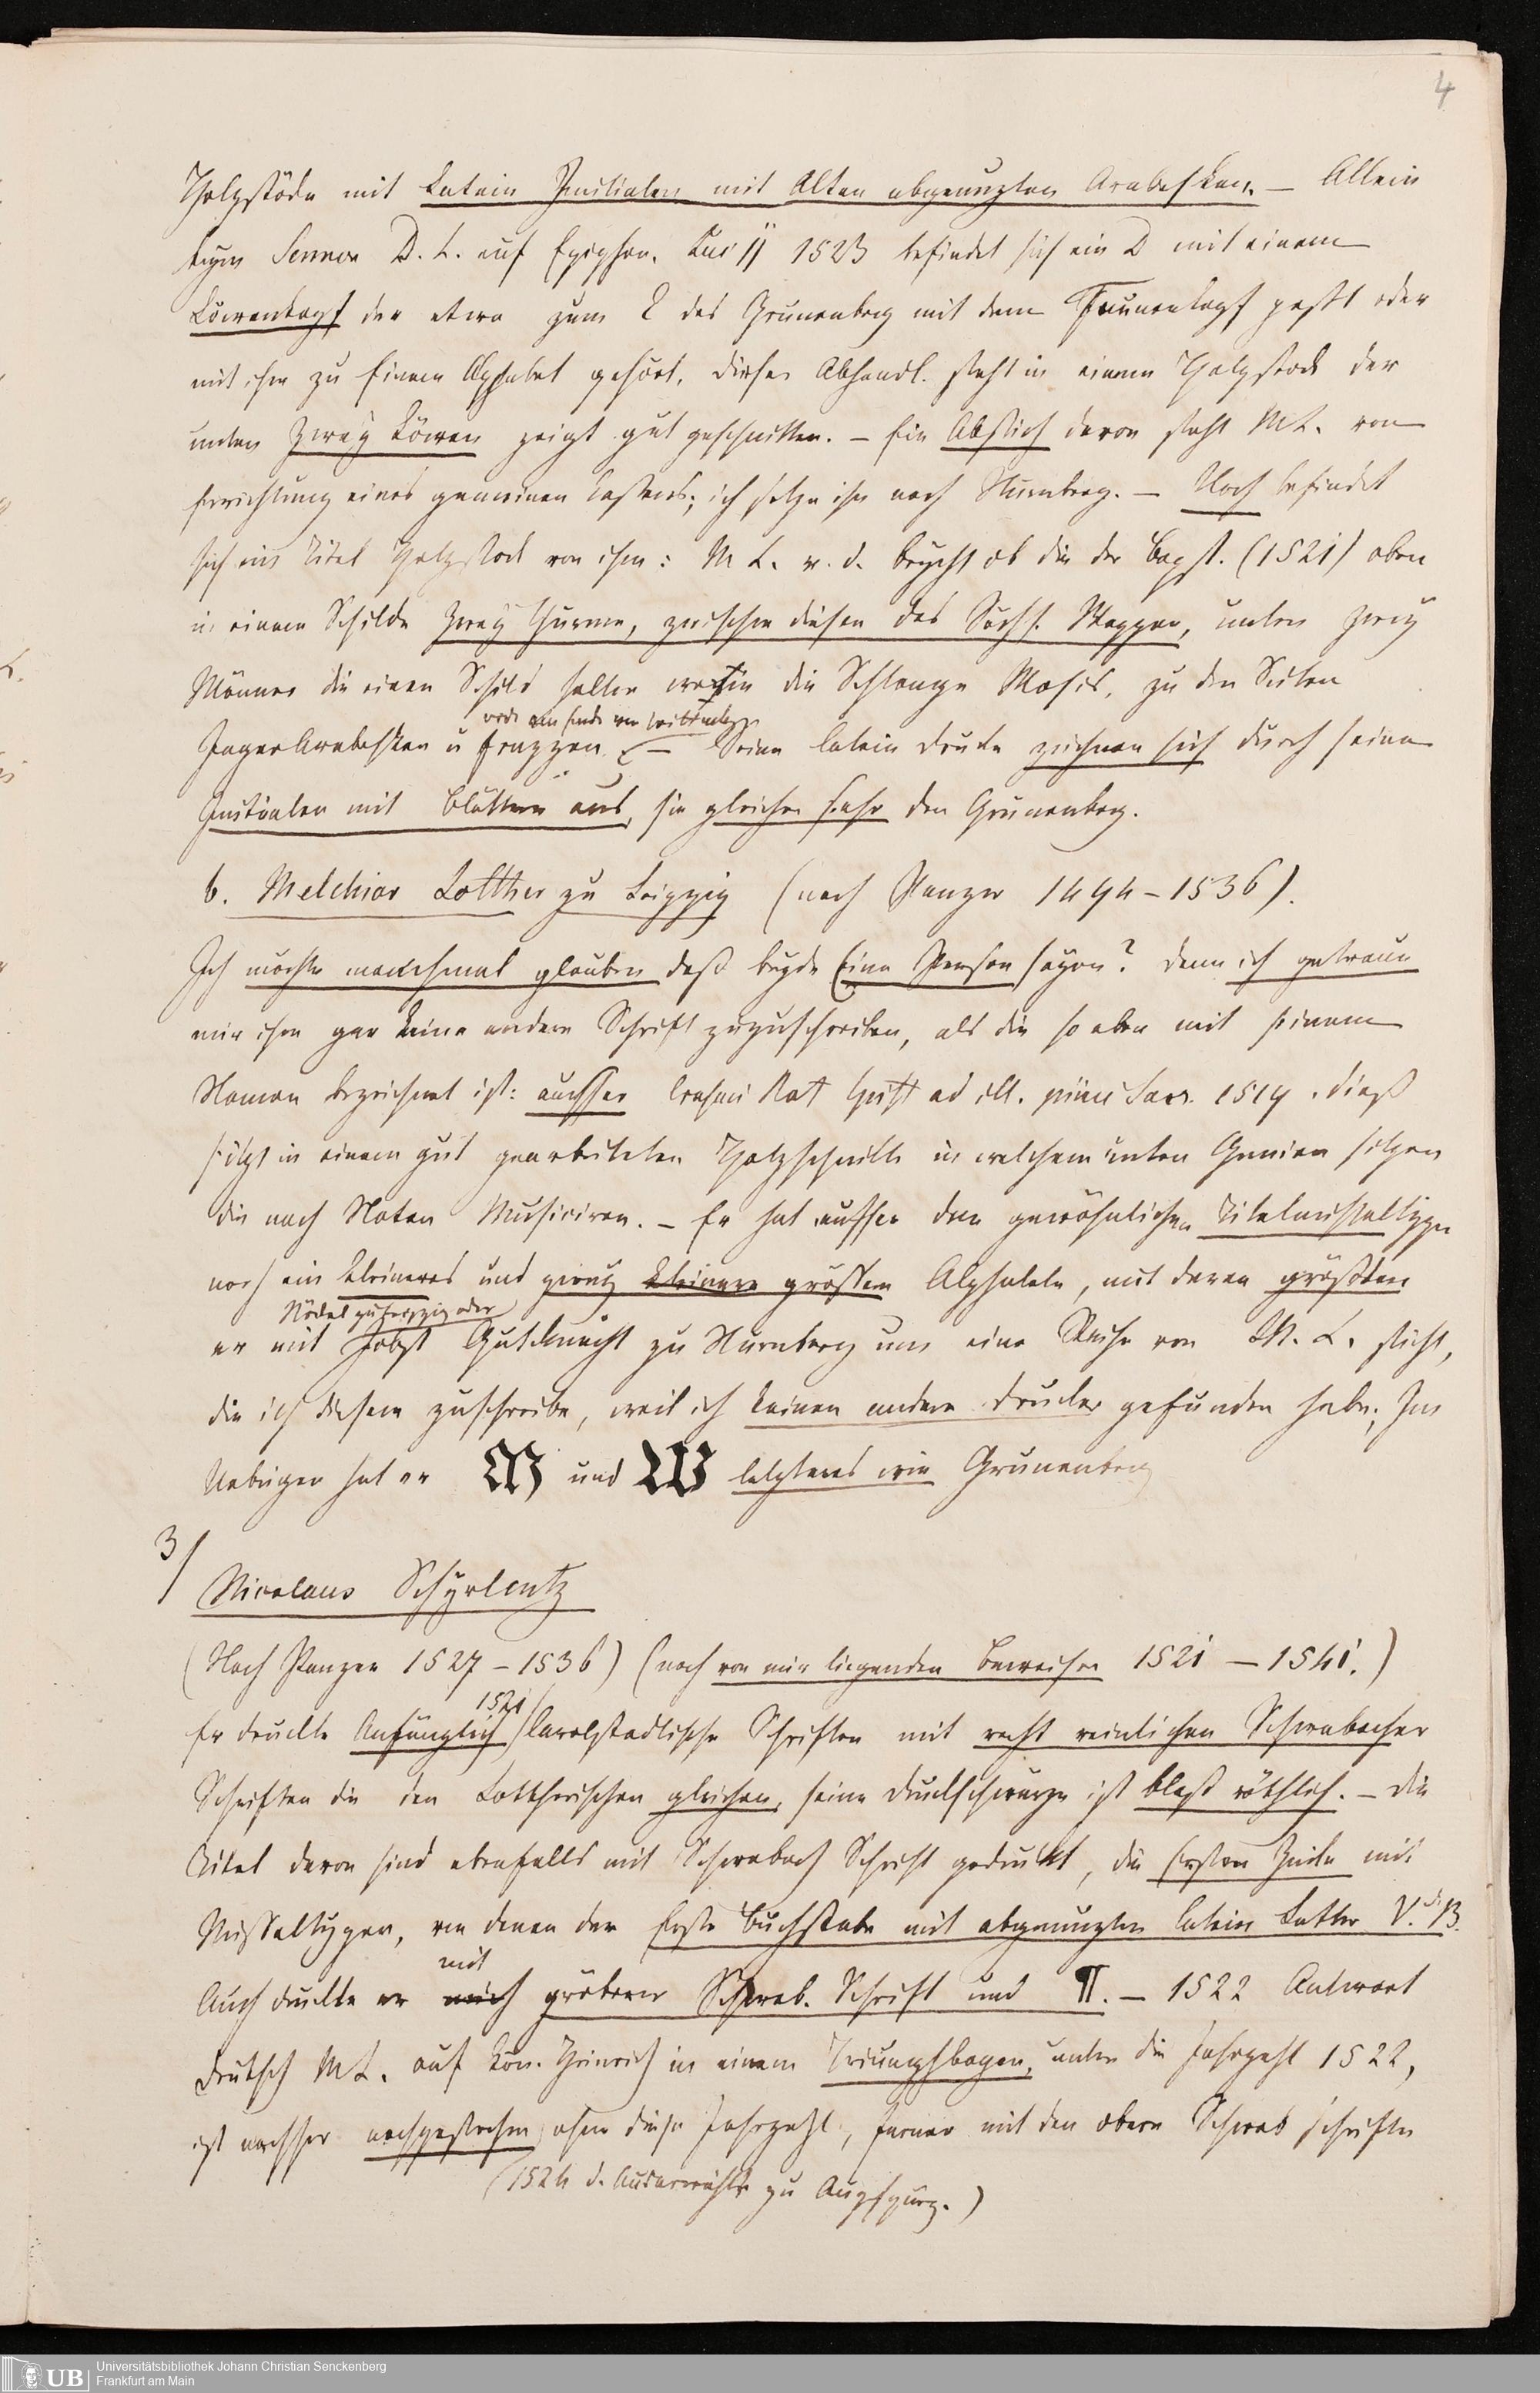 4
Holzstöcke mit Latein Initialen mit Alten abgenuzten Arabesken. — Allein
beym Sermon D. L. auf Epiphan. Luc 11 1523 befindet sich ein D mit einem
Löwenkopf der etwa zum E des Grunenberg mit dem Faunenkopf paßt oder
mit ihm zu Einem Alphabet gehört, diese Abhandl. steht in einem Holzstock der
unten Zwey Löwen zeigt gut geschnitten. — Ein Abstich davon steht M L. von
Errichtung eines gemeinen Kastens; ich setze ihn nach Nurnberg. — Noch befindet
sich ein Titel Holzstock von ihm: M L. v. d. beycht ob die der Bapst. (1521) oben
in einem Schilde zwey Thürme, zwischen diesen das Sächs. Wappen, unten zwey
Männer die einen Schild halten worin die Schlange Mosis, zu den Seiten
Jagerarabesken u Frazzen. — Seine latein drucke zeichnen sich durch seine
Initialen mit Blättern aus, sie gleichen sehr den Grunenberg.
b. Melchior Lotther zu Leipzig (nach Panzer 1494 – 1536).
Ich möchte manchmal glauben daß beyde Eine Person seyen? denn ich getraue
mir ihm gar keine andere Schrift zuzuschreiben, als die so eben mit seinem
Namen bezeichnet ist: ausser Erasmi Rot Epist ad ill. princ Sax. 1519. dieß
sitzt in einem gut gearbeiteten Holzschnitte in welchem unten Genien sitzen
die nach Noten Musiciren. — Er hat ausser den gewöhnlichen Titelmissaltypen
noch ein kleineres und zwey kleinere grössere Alphabete, mit deren größtem
Nickel zu Leipzig oder
er mit Jobst Gutknecht zu Nurnberg um eine Reihe von M. L. sticht,
die ich diesem zuschreibe, weil ich keinen andern drucker gefunden habe; Im
Uebrigen hat er W und W letzteres wie Grunenberg
3/
Nicolaus Schyrlentz
(Nach Panzer 1527 – 1536) (nach vor mir liegenden Beweisen 1521 — 1541.)
1521
Er druckte Anfänglich Carolstadtische Schriften mit recht reinlichen Schwabacher
Schriften die den Lottherischen gleichen, seine Druckschwärze ist blaß röthlich. — die
Titel davon sind ebenfalls mit Schwabach Schrift gedruckt, die Ersten Zeile mit
Missaltypen, von denen der Erste Buchstabe mit abgenuzten latein Letter V. d. B.
mit
Auch druckte er mich gröberer Schwab. Schrift und ¶. — 1522 Antwort
deutsch M L. auf Kön. Heinrich in einem Triumphbogen, unten die Jahrzahl 1522,
ist nachher nachgestochen ohne diese Jahrzahl, ferner mit den obern Schwab schriften
(1524 d. Auserwählte zu Augspurg.)
Universitätsbibliothek Johann Christian Senckenberg
Frankfurt am Main
UB